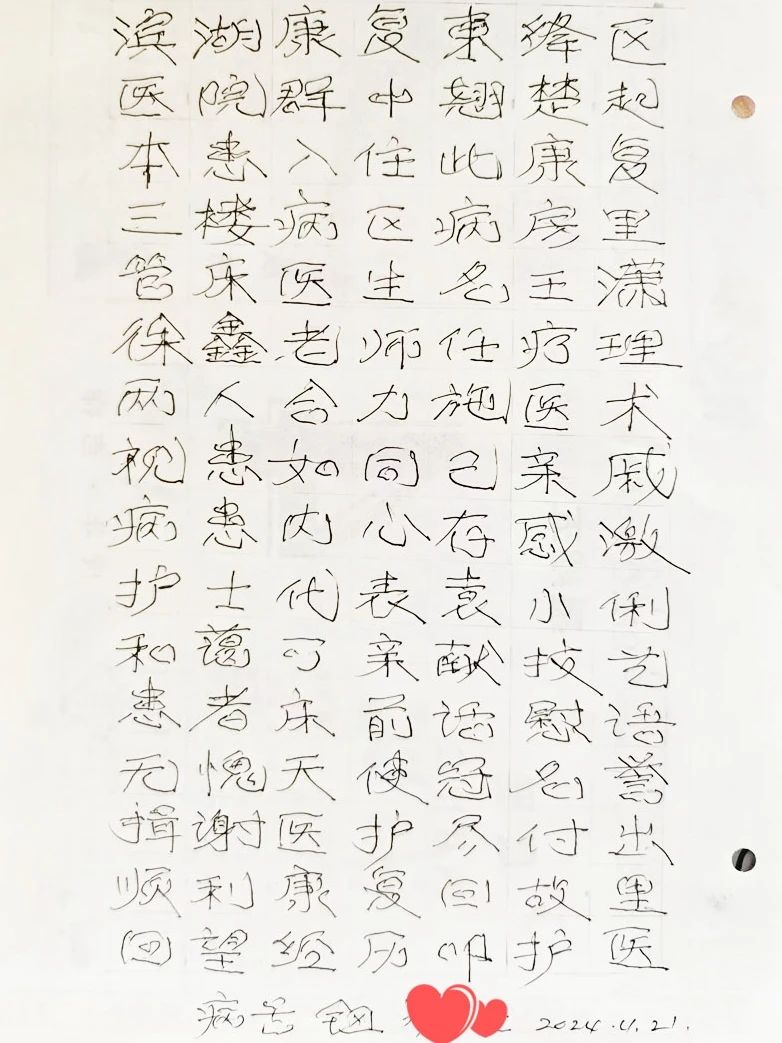 滨湖康复东绛区
医院群中翘楚起
本患入住此康复
三楼病区病房里
管床医生名王潇
徐鑫老师任疗理
两人合力施医术
视患如同己亲戚
病患内心存感激
护士代表袁小俐
和蔼可亲献技艺
患者床前话慰语
无愧天使冠名誉
揖谢医护尽付出
顺利康复回故里
回望经历叩护医
2024.4.21.